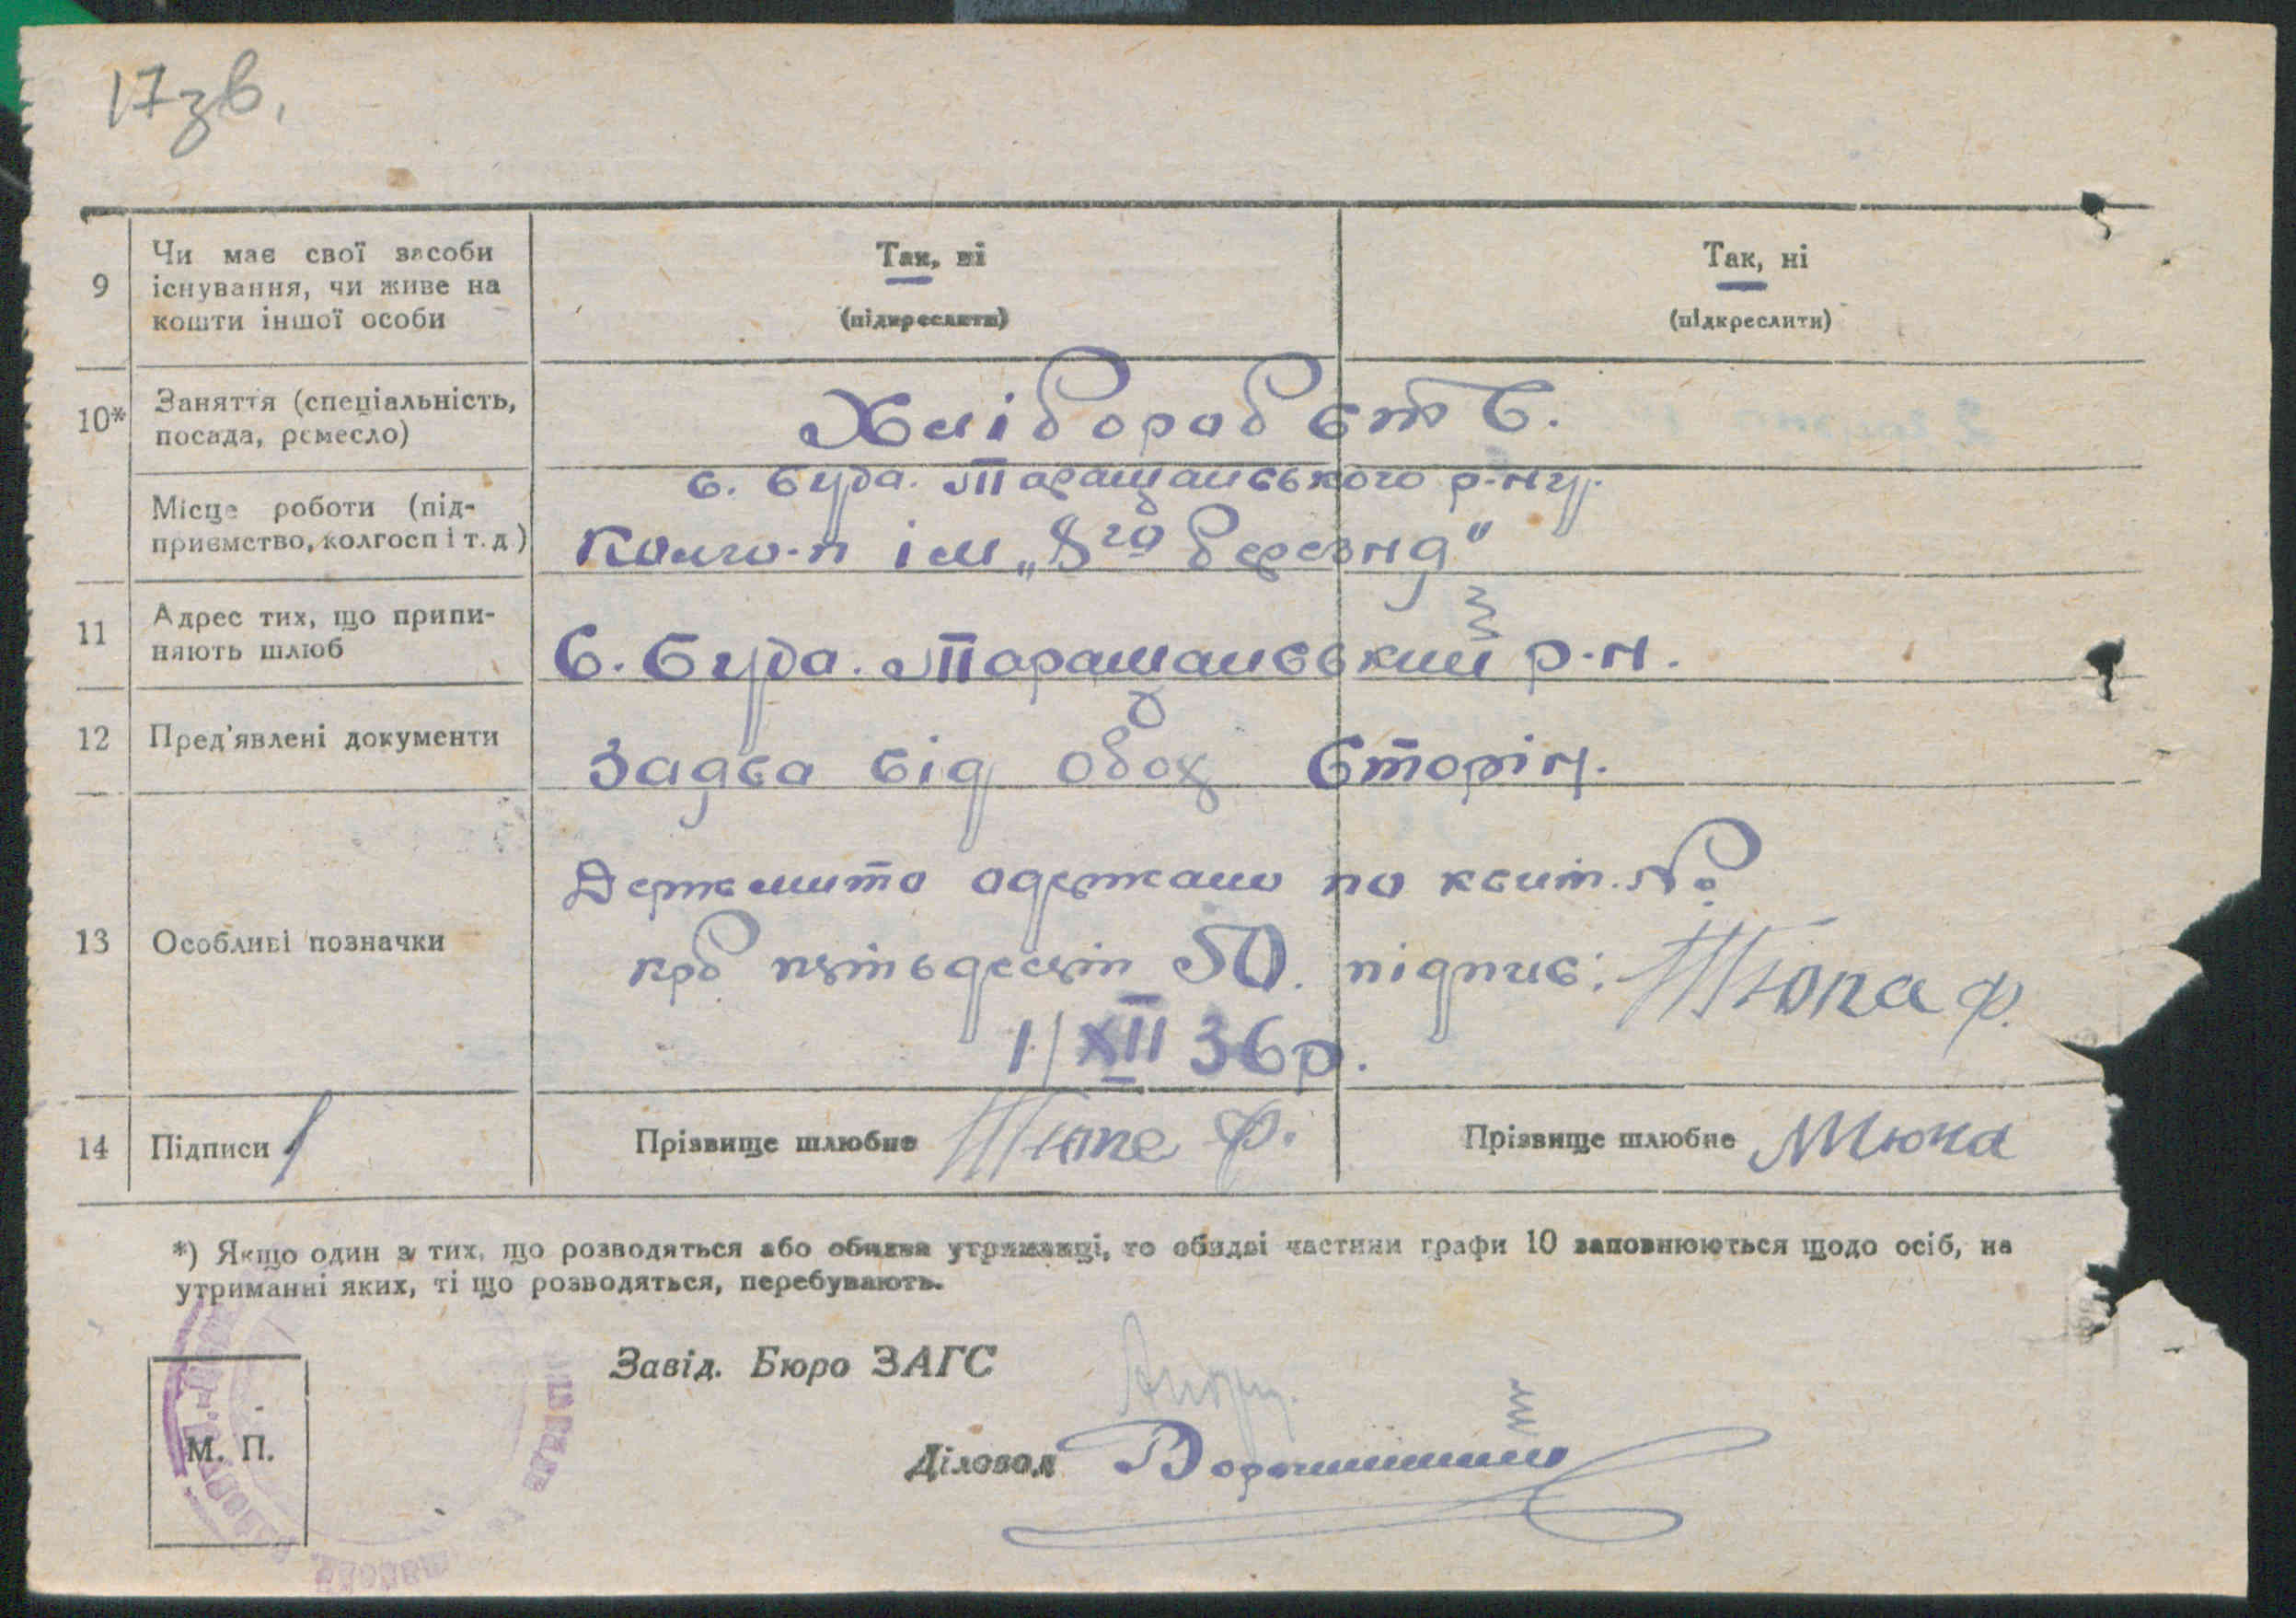 17 зв.
9
Чи має свої засоби
існування, чи живе на
кошти іншої особи
Так, ні
(підкреслити)
Так, ні
(підкреслити)
10*
Заняття (спеціальність,
посада, ремесло)
Хлібороб ств.
Місце роботи (під-
приємство, колгосп і т. д)
с. Буда. Таращанського р-ну.
Колго-п ім „8го березня"
11
Адрес тих, що припи-
няють шлюб
С. Буда. Таращанський р-н.
12
Пред'явлені документи
Заява від обох Сторін.
13
Особливі позначки
Держмито одержано по квит. №
крб пятьдесят 50. підпис: Тюпа Ф.
1/XII 36 р.
14
Підписи
Прізвище шлюбне Тюпа Ф.
Прізвище шлюбне
*) Якщо один з тих, що розводяться або обидва утриманці, то обидві частини графи 10 заповнюються щодо осіб, на
утриманні яких, ті що розводяться, перебувають.
Завід. Бюро ЗАГС
Діловод
М. П.